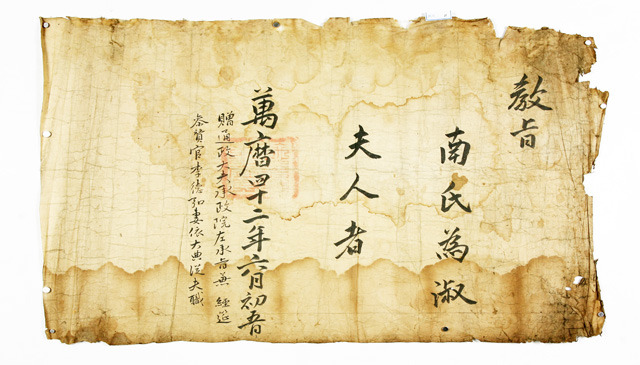 教旨
南氏為淑
夫人者
萬曆四十二年六月初五日
贈通政大夫承政院左承旨兼 經筵
參贊官李德弘妻依大典從夫職